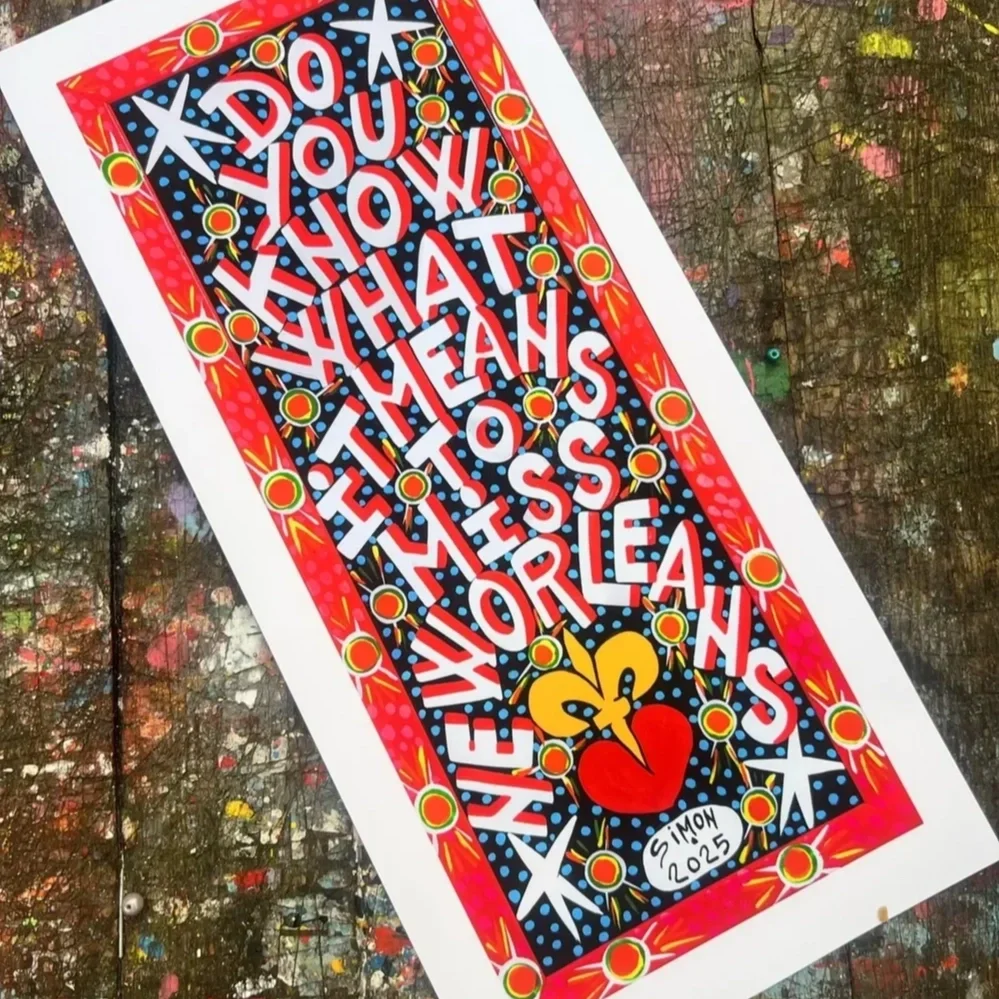 DO
YOU
KNOW
WHAT
iT MEANS
TO
MiSS
NEW ORLEANS
SiMON
2025